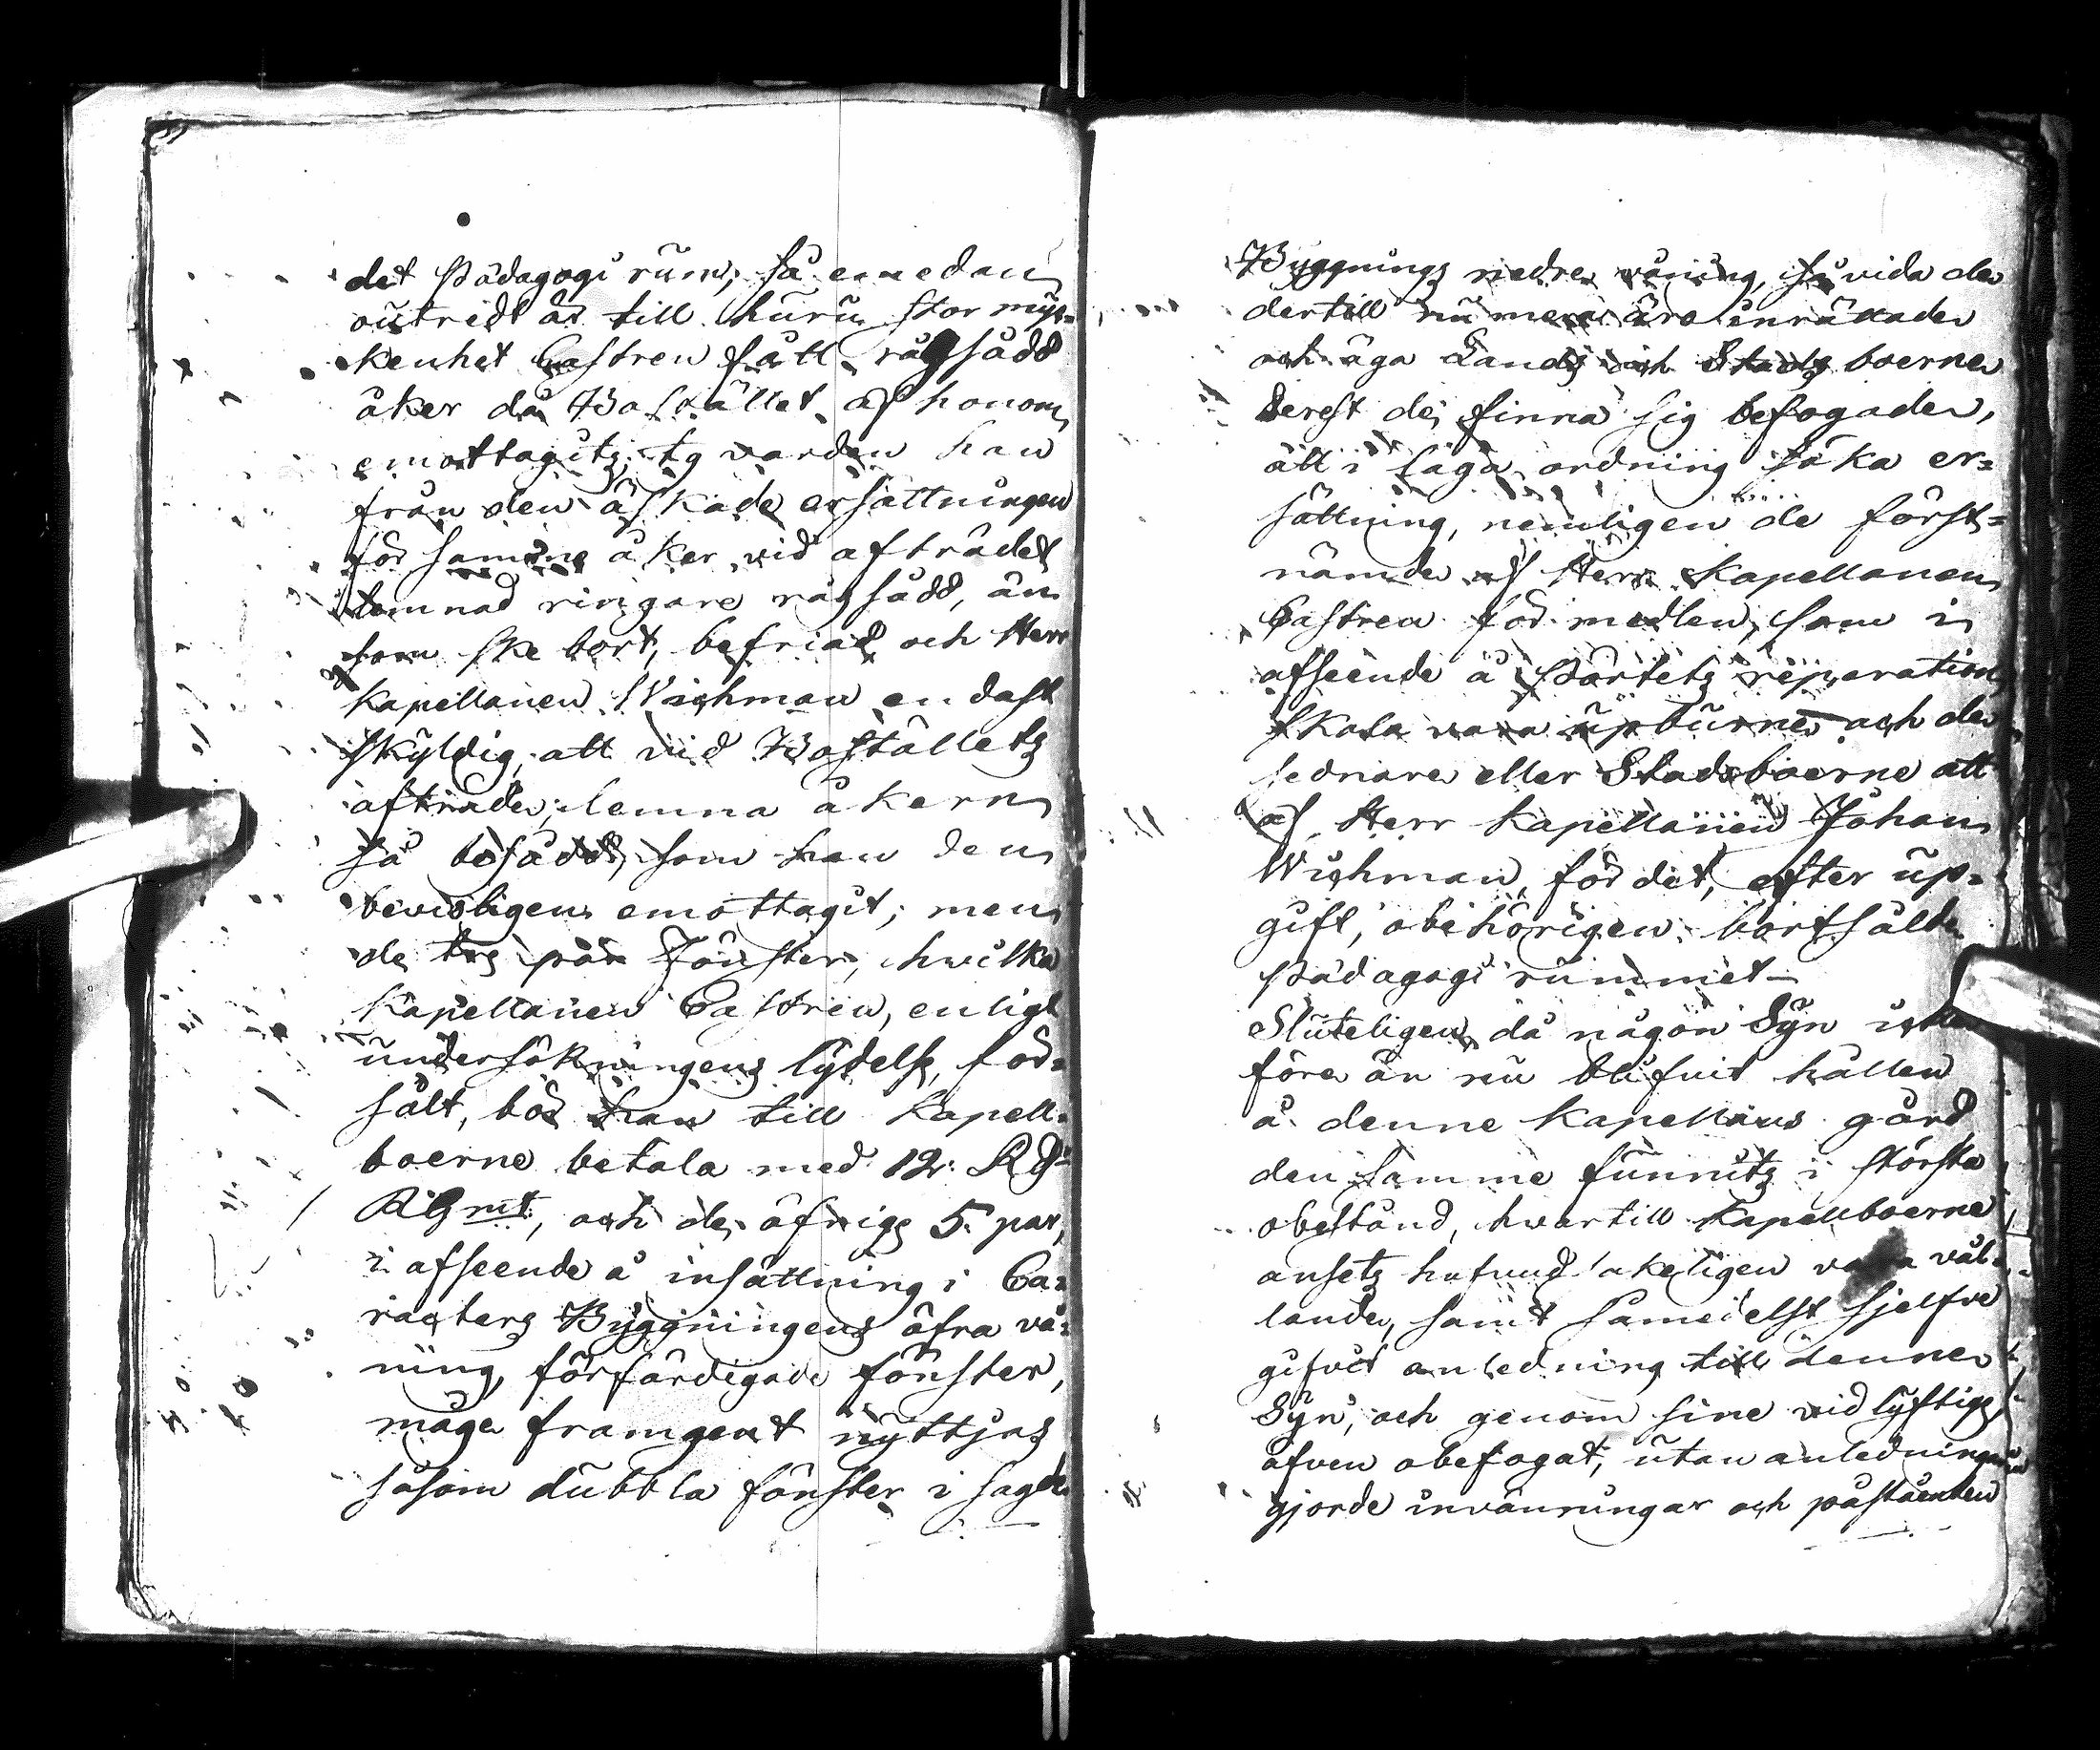 det Pädagogi rum, så emedan
outredt är till huru stor myc-
kenhet Castren fått rågsådd
åker då Bostället af honom
emottagits, ty varder han
från den äskade ersättningen
för samme åker vid afträdet
lemnad ringare rågsådd, än
som ske bort, befriad och Herr
Kapellanen Wichman endast
skyldig, att vid Boställets
afträde, lemna åkern
så besådd, som han den
bevisligen emottagit; men
de tre par Fönster, hwilka
Kapellanen Castren, enligt
undersökningens lydelse, för-
sålt, bör han till Kapell-
boerne betala med 12. Rd
RGmt, och de öfrige 5. par,
i afseende å insättning i Ca-
racters Byggningens öfra vå-
ning, förfärdigade fönster,
måge framgent nyttjas
såsom dubbla fönster i sagde
Byggnings nedre våning, så vida de
dertill nu mera äro inrättade
och äga Lands och Stads boerne
derest de finna sig befogade,
att i laga ordning söka er-
sättning, nemligen de först-
nämde af Herr Kapellanen
Castren för medlen, som i
afseende å Pörtets reparation
skola vara upburne och de
sednare eller Stadsboerne att
af Herr Kapellanen Johan
Wichman, för det, efter up-
gift, obehörigen bortsålde
Pädagogi rummet
Sluteligen då någon Syn icke
före än nu blifvit hållen
å denne Kapellans gård
den samme funnits i största
obestånd, hwartill Kapellboerne
ansets hufvudsakeligen vara vål-
lande, samt samedelst sjelfve
gifvit anledning till denne
Syn, och genom sine vidlyftige,
äfven obefogat, utan anledningar
gjorde invänningar och påståenden